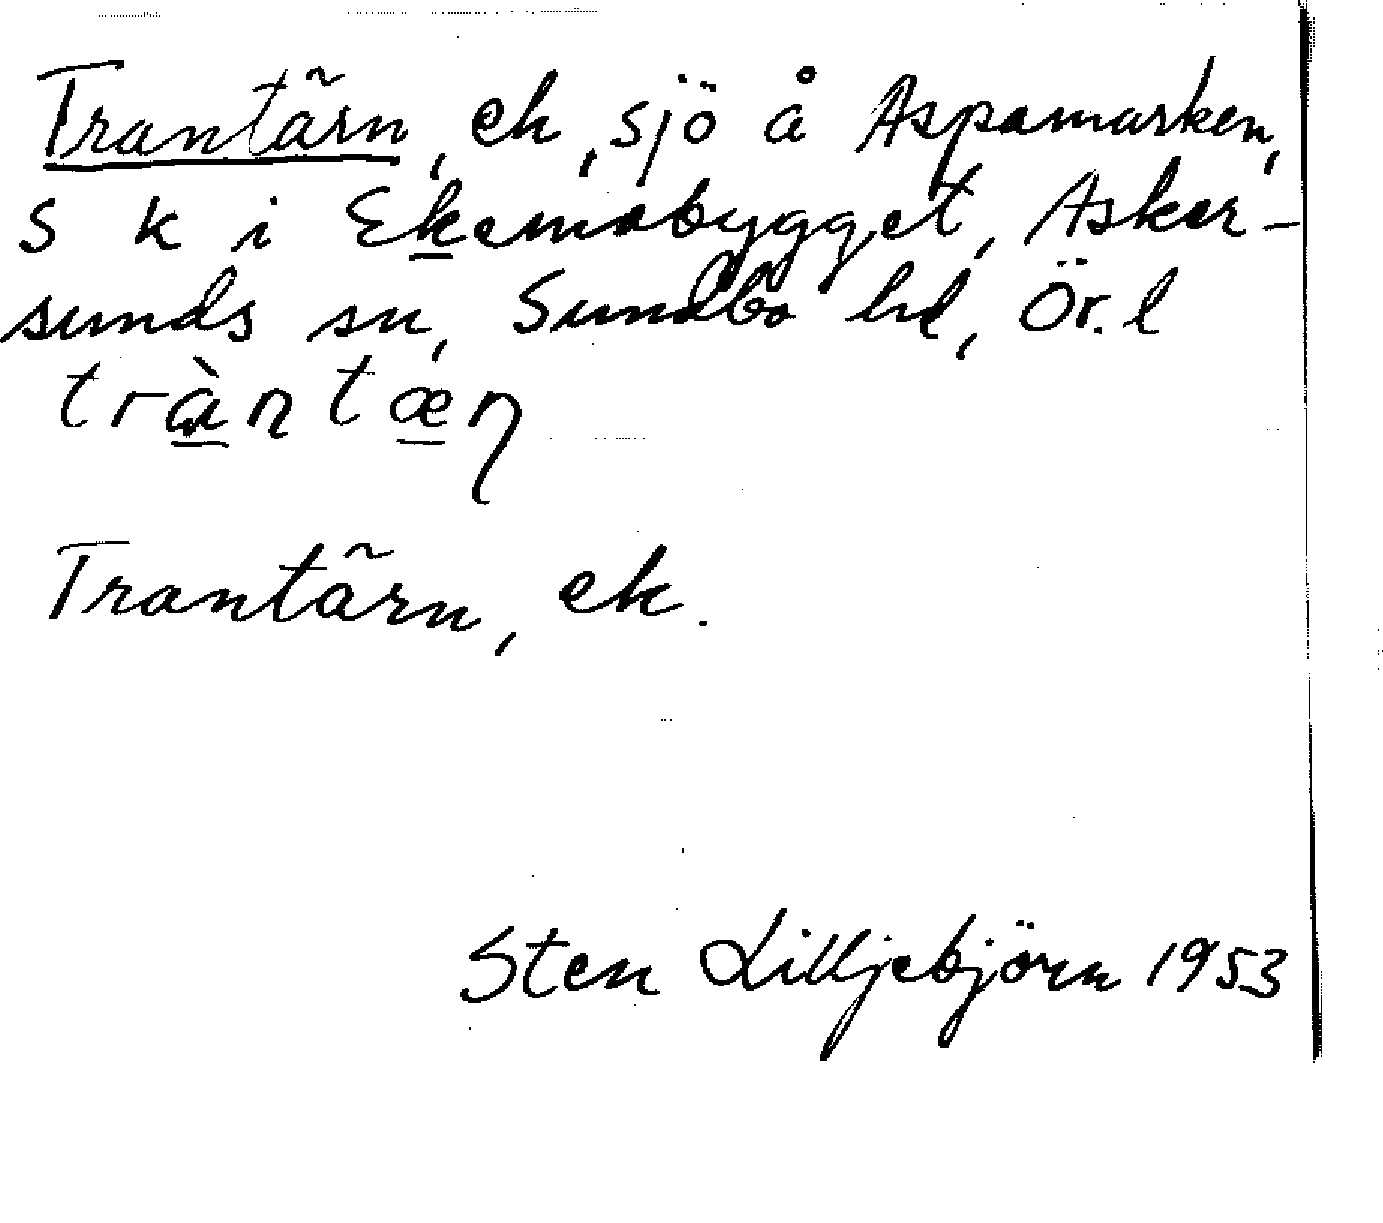 Trantärn, ek, sjö å Aspamarken,
S k i Ekemobygget, Asker-
sunds sn, Sundbo hd, Ör. l
tràntæɳ
Trantärn, ek.
Sten Lilljebjörn 1953